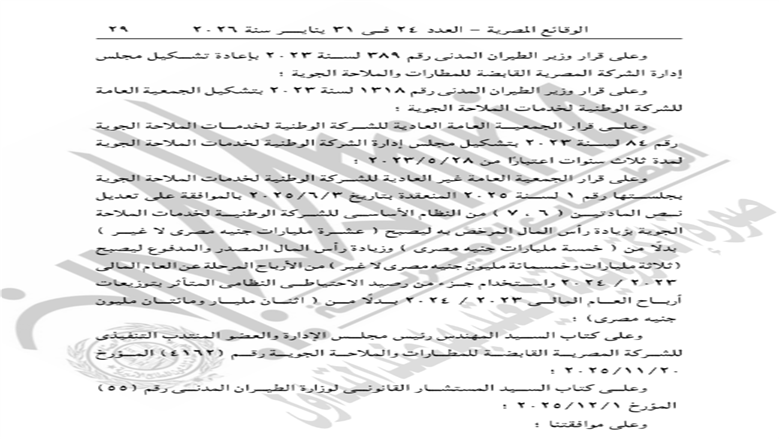 الوقائع المصرية – العدد ٢٤ فى ٣١ يناير سنة ٢٠٢٦ ٢٩
وعلى قرار وزير الطيران المدنى رقم ٣٨٩ لسنة ٢٠٢٣ بإعادة تشكيل مجلس
إدارة الشركة المصرية القابضة للمطارات والملاحة الجوية ؛
وعلى قرار وزير الطيران المدنى رقم ١٣١٨ لسنة ٢٠٢٣ بتشكيل الجمعية العامة
للشركة الوطنية لخدمات الملاحة الجوية ؛
وعلى قرار الجمعية العامة العادية للشركة الوطنية لخدمات الملاحة الجوية
رقم ٨٤ لسنة ٢٠٢٣ بتشكيل مجلس إدارة الشركة الوطنية لخدمات الملاحة الجوية
لمدة ثلاث سنوات اعتبارًا من ٢٠٢٣/٥/٢٨ ؛
وعلى قرار الجمعية العامة غير العادية للشركة الوطنية لخدمات الملاحة الجوية
بجلستها رقم ١ لسنة ٢٠٢٥ المنعقدة بتاريخ ٢٠٢٥/٦/٣ بالموافقة على تعديل
نص المادتين ( ٦ ، ٧ ) من النظام الأساسى للشركة الوطنية لخدمات الملاحة
الجوية بزيادة رأس المال المرخص به ليصبح ( عشرة مليارات جنيه مصرى لا غير )
بدلًا من ( خمسة مليارات جنيه مصرى ) وزيادة رأس المال المصدر والمدفوع ليصبح
(ثلاثة مليارات وخمسمائة مليون جنيه مصرى لا غير ) من الأرباح المرحلة عن العام المالى
٢٠٢٣ / ٢٠٢٤ واستخدام جزء من رصيد الاحتياطى النظامى المتأثر بتوزيعات
أرباح العام المالى ٢٠٢٣ / ٢٠٢٤ بدلًا من ( اثنان مليار ومائتان مليون
جنيه مصرى) ؛
وعلى كتاب السيد المهندس رئيس مجلس الإدارة والعضو المنتدب التنفيذى
للشركة المصرية القابضة للمطارات والملاحة الجوية رقم (٤١٦٢) المؤرخ
٢٠٢٥/١١/٢٠ ؛
وعلى كتاب السيد المستشار القانونى لوزارة الطيران المدنى رقم (٥٥)
المؤرخ ٢٠٢٥/١٢/١ ؛
وعلى موافقتنا ؛